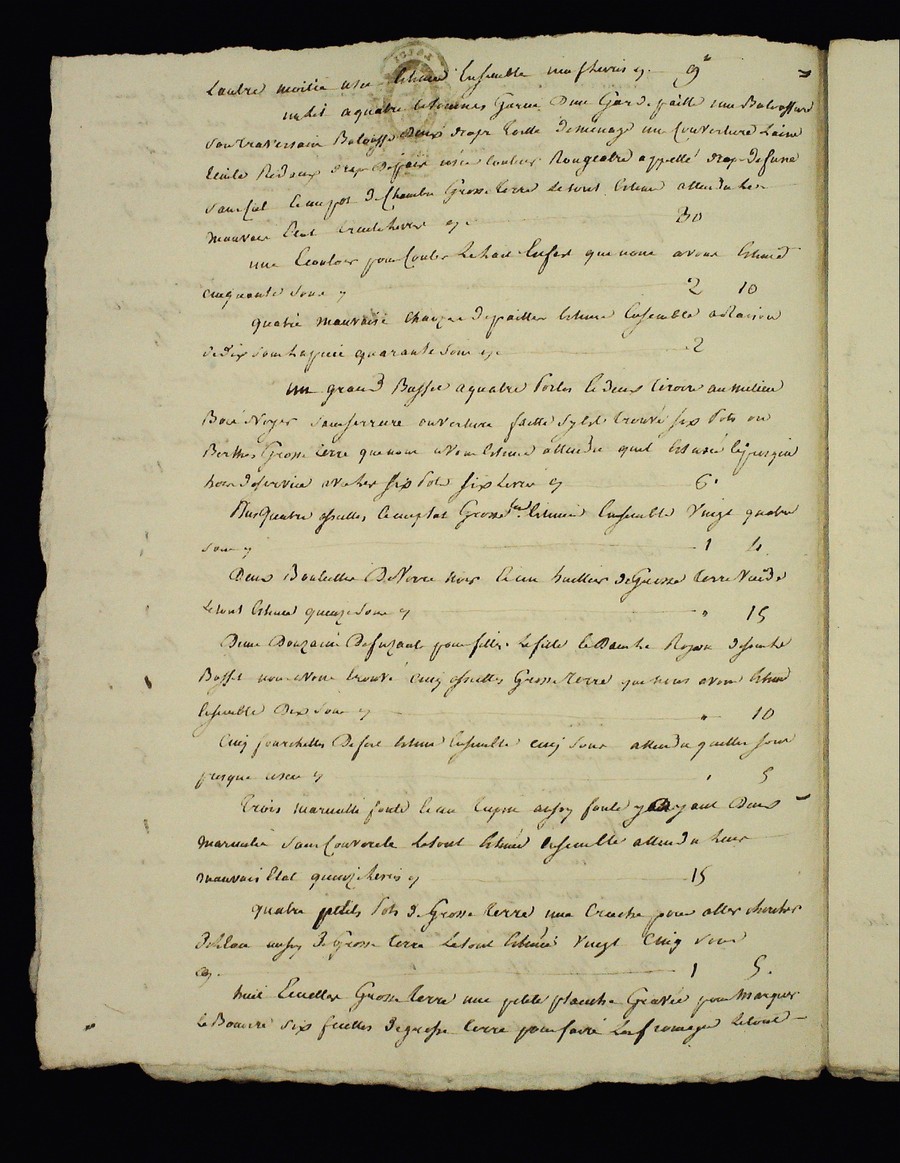 L'autre moitié usée Estimé Ensemble neuf livres cy. 9"
un lit a quatre Colonnes Garni D'une Garde paille une Balouffiere
son traversain Balouffe Deux drap toille de menage une Couverture Laine
appellé drap
sans Ciel Grosse terre Le tout Estimé attendu Le
mauvais Etat trente livres cy. 30
une pour Couler que nous avons Estimé
cinquante sous cy 2 10
quatre mauvaise Chaizes de pailler Estimé Ensemble a Raison
de dix sous La piece quarante sous cy. 2
un grand Buffet a quatre Portes et Deux tiroir au milieu
Bois Noyer sans serrure ouverture faitte s'y est trouvé six Pots ou
Berthes Grosse terre que nous avons Estimé attendu quil Est usé Et presque
hors de service avec les six Pots six Livres cy 6"
Plus quatre assiettes Grosse ter. Estimé Ensemble Vingt quatre
sous cy 1 4
Deux Bouteilles De Verre noir Et un huillier de Grosse terre Vuide
Le tout Estimé quinze sous cy " 15
Demi Douzaine De fuzeaux pour filler Le fille Et Dans Le Rayon dessus le
Buffet nous avons trouvé cinq assiettes Grosse terre que nous avons Estimé
Ensemble Dix sous cy " 10
Cinq fourchettes De fert Estimé Ensemble cinq sous attendu quelles sont
presque usée cy " 5
trois marmitte fonte Et un aussy fonte y ayant Deux
marmitte sans Couvercle Le tout Estimé Ensemble attendu Leur
mauvais Etat quinze Livres cy 15
quatre petits Pots de Grosse terre une Cruche pour aller chercher
De l'Eau aussy De Grosse terre Le tout Estimé vingt Cinq sous
cy. 1 5.
huit Ecuelles Grosse terre une petite planche Gravée pour Marquer
Le Beurre six de grosse terre pour faire Les fromages Le tout